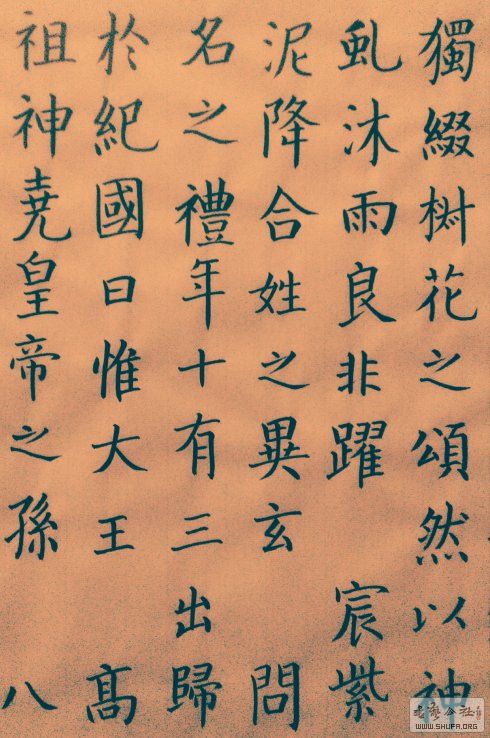 獨綴椒花之頌然以神
虬沐雨良非躍宸紫
泥降合姓之異玄問
名之禮年十有三出歸
於紀國曰惟大王高
祖神堯皇帝之孫八
WWW.SHUFA.ORG